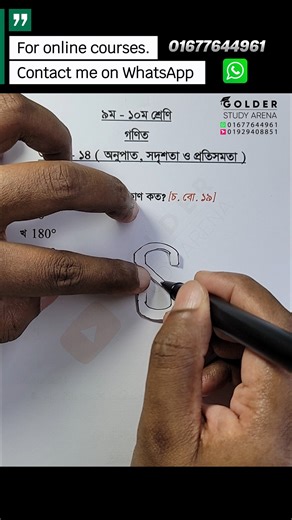 For online courses. 01677644961
Contact me on WhatsApp
GOLDER
STUDY ARENA
01677644961
01929408851
৯ম - ১০ম শ্রেণি
গণিত
- ১৪ ( অনুপাত, সদৃশতা ও প্রতিসমতা )
কত? [চ. বো. ১৯]
খ 180°
S